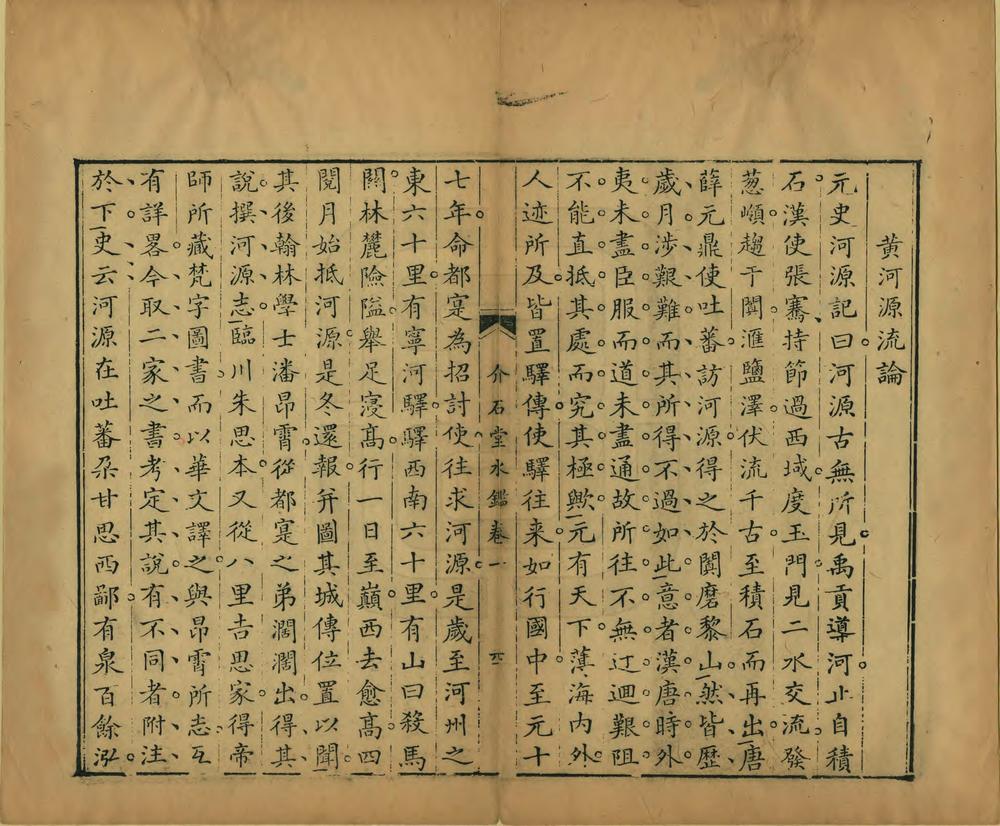 黄河源流論
元史河源記曰河源古無所見禹貢導河止自積
石漢使張騫持節過西域度玉門見二水交流發
葱嶺趨于闐滙鹽澤伏流千古至積石而再出唐
薛元鼎使吐蕃訪河源得之於闐磨黎山然皆歷
歲月涉艱難而其所得不過如此意者漢唐時外
夷未盡臣服而道未盡通故所往不無迂迴艱阻
不能直抵其處而究其極歟元有天下薄海內外
人迹所及皆置驛傳使驛往来如行國中至元十
介石堂水鑑卷一
七年命都寔為招討使往求河源是歲至河州之
東六十里有寧河驛驛西南六十里有山曰殺馬
關林麓險隘舉足寖高行一日至巔西去愈高四
閱月始抵河源是冬還報并圖其城傳位置以聞
其後翰林學士潘昂霄從都寔之弟濶濶出得其
說撰河源志臨川朱思本又從八里吉思家得帝
師所藏梵字圖書而以華文譯之與昂霄所志互
有詳畧今取二家之書考定其說有不同者附注
於下史云河源在吐蕃朶甘思西鄙有泉百餘泓